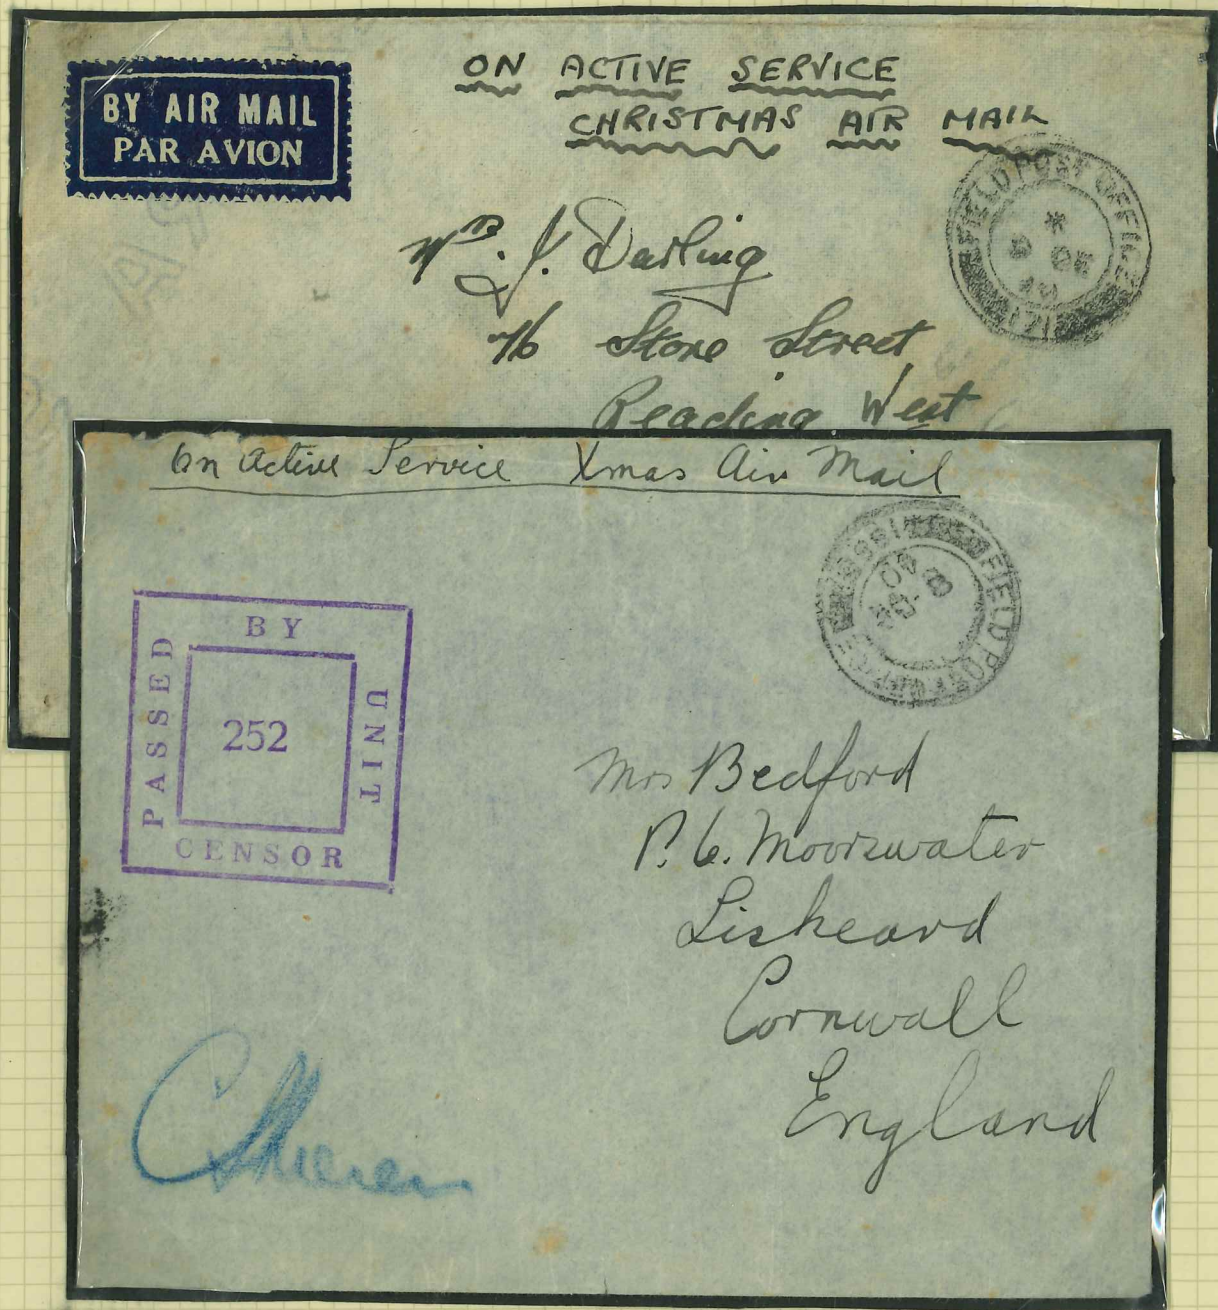 BY AIR MAIL
PAR AVION
ON ACTIVE SERVICE
CHRISTMAS AIR MAIL
FIELD POST OFFICE
171
Mrs. J. Darling
76 Stone Street
Reading West
On Active Service Xmas Air Mail
FIELD POST OFFICE
PASSED BY UNIT CENSOR
252
Mrs Bedford
Moorswater
Liskeard
Cornwall
England